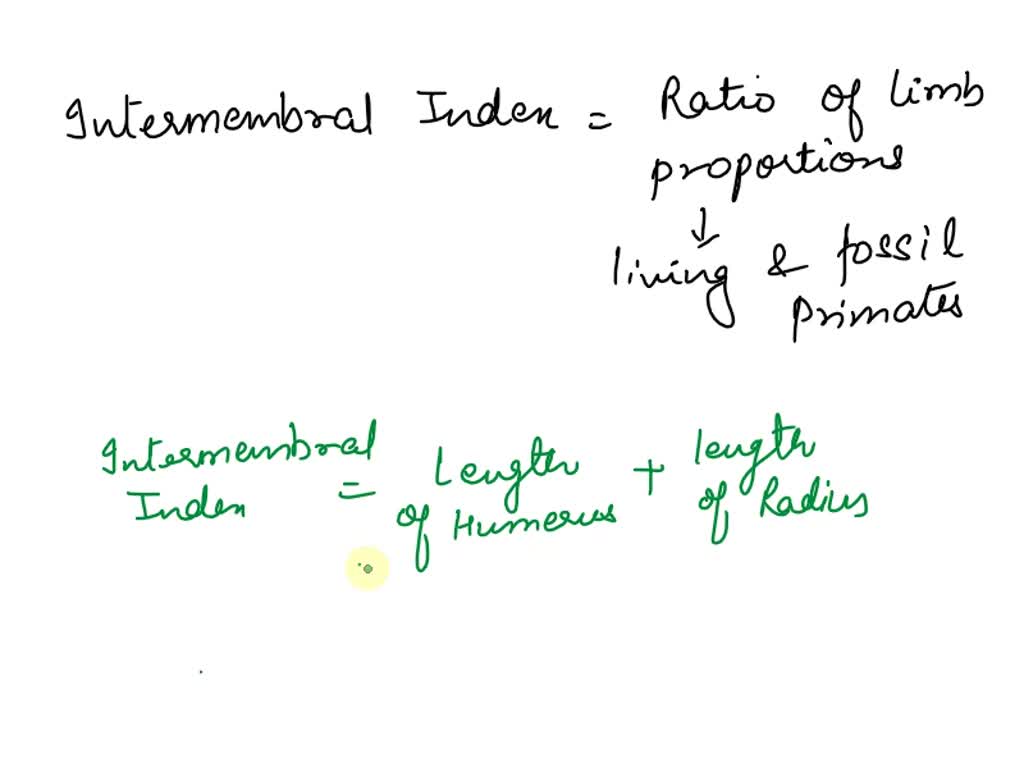 Intermembral Index = Ratio of limb
proportions
↓
living & fossil
primates
Intermembral
Index = Length of Humerus + length of Radius